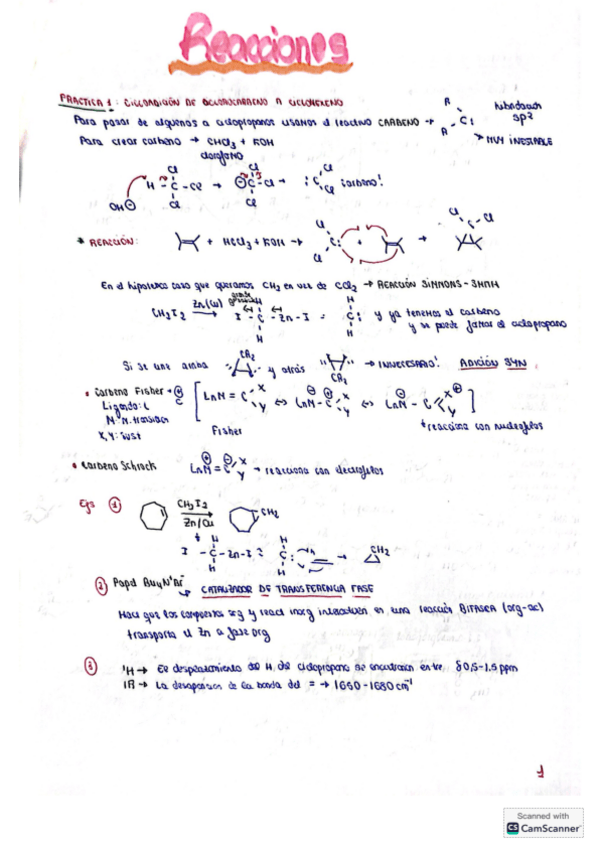 Reacciones
PRACTICA 1: CICLOADICIÓN DE DICLOROCARBENO A CICLOHEXENO
Para pasar de alquenos a ciclopropanos usamos el reactivo CARBENO → R R C: hibridación sp2
→ MUY INESTABLE
Para crear carbeno → CHCl3 + KOH
cloroformo
OH⊖ H - C - Cl Cl Cl → ⊖C - Cl Cl Cl → :C Cl Cl carbeno!
* REACCIÓN: + HCCl3 + KOH → Cl Cl C: + → Cl Cl C
En el hipotetico caso que queramos CH2 en vez de CCl2 → REACCIÓN SIMMONS-SMITH
CH2I2 Zn(Cu) → I - C - Zn - I = H C: H y ya tenemos el carbeno
y se puede formar el ciclopropano
Si se une arriba CR2 y atrás CR2 → INNECESARIO! ADICIÓN SYN
• Carbeno Fisher → ⊕ C [ LnM = C X Y ↔ LnM - C X Y ↔ LnM - C X Y ]
Ligando: L
M: M. transición
X, Y: sust
Fisher
* reacciona con nucleofilos
• Carbeno Schrock LnM = C X Y → reacciona con electrofilos
Ejs ① CH2I2 Zn/Cu CH2
I - C - Zn - I = C: → CH2
② Papel Bu4N+Br- → CATALIZADOR DE TRANSFERENCIA FASE
Hace que los compuestos org y react inorg interactúen en una reacción BIFASICA (org-ac)
transporta el Zn a fase org
③ 1H → El desplazamiento del H, del ciclopropano se encuentran entre δ 0,5-1,5 ppm
IR → La desaparición de la banda del = → 1650-1680 cm-1
1
Scanned with
CS CamScanner